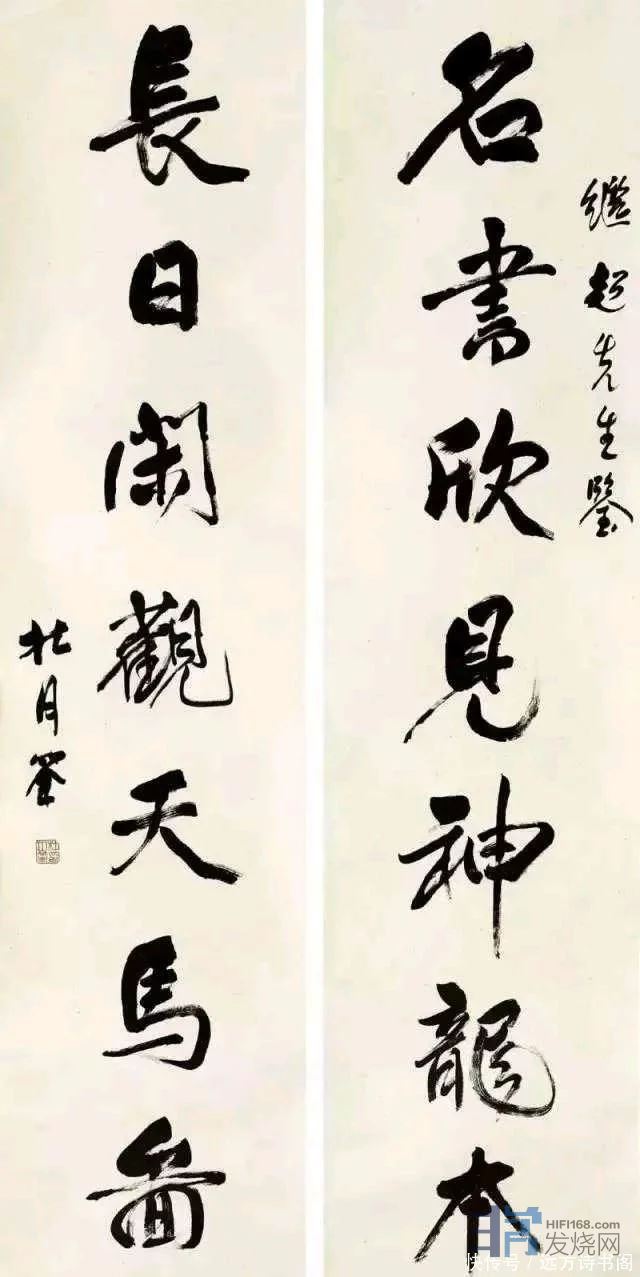 繼超先生鑒
名書欣見神龍本
長日閑觀天馬圖
杜月笙
HIFI168.com
发烧网
快传号 / 远方诗书阁